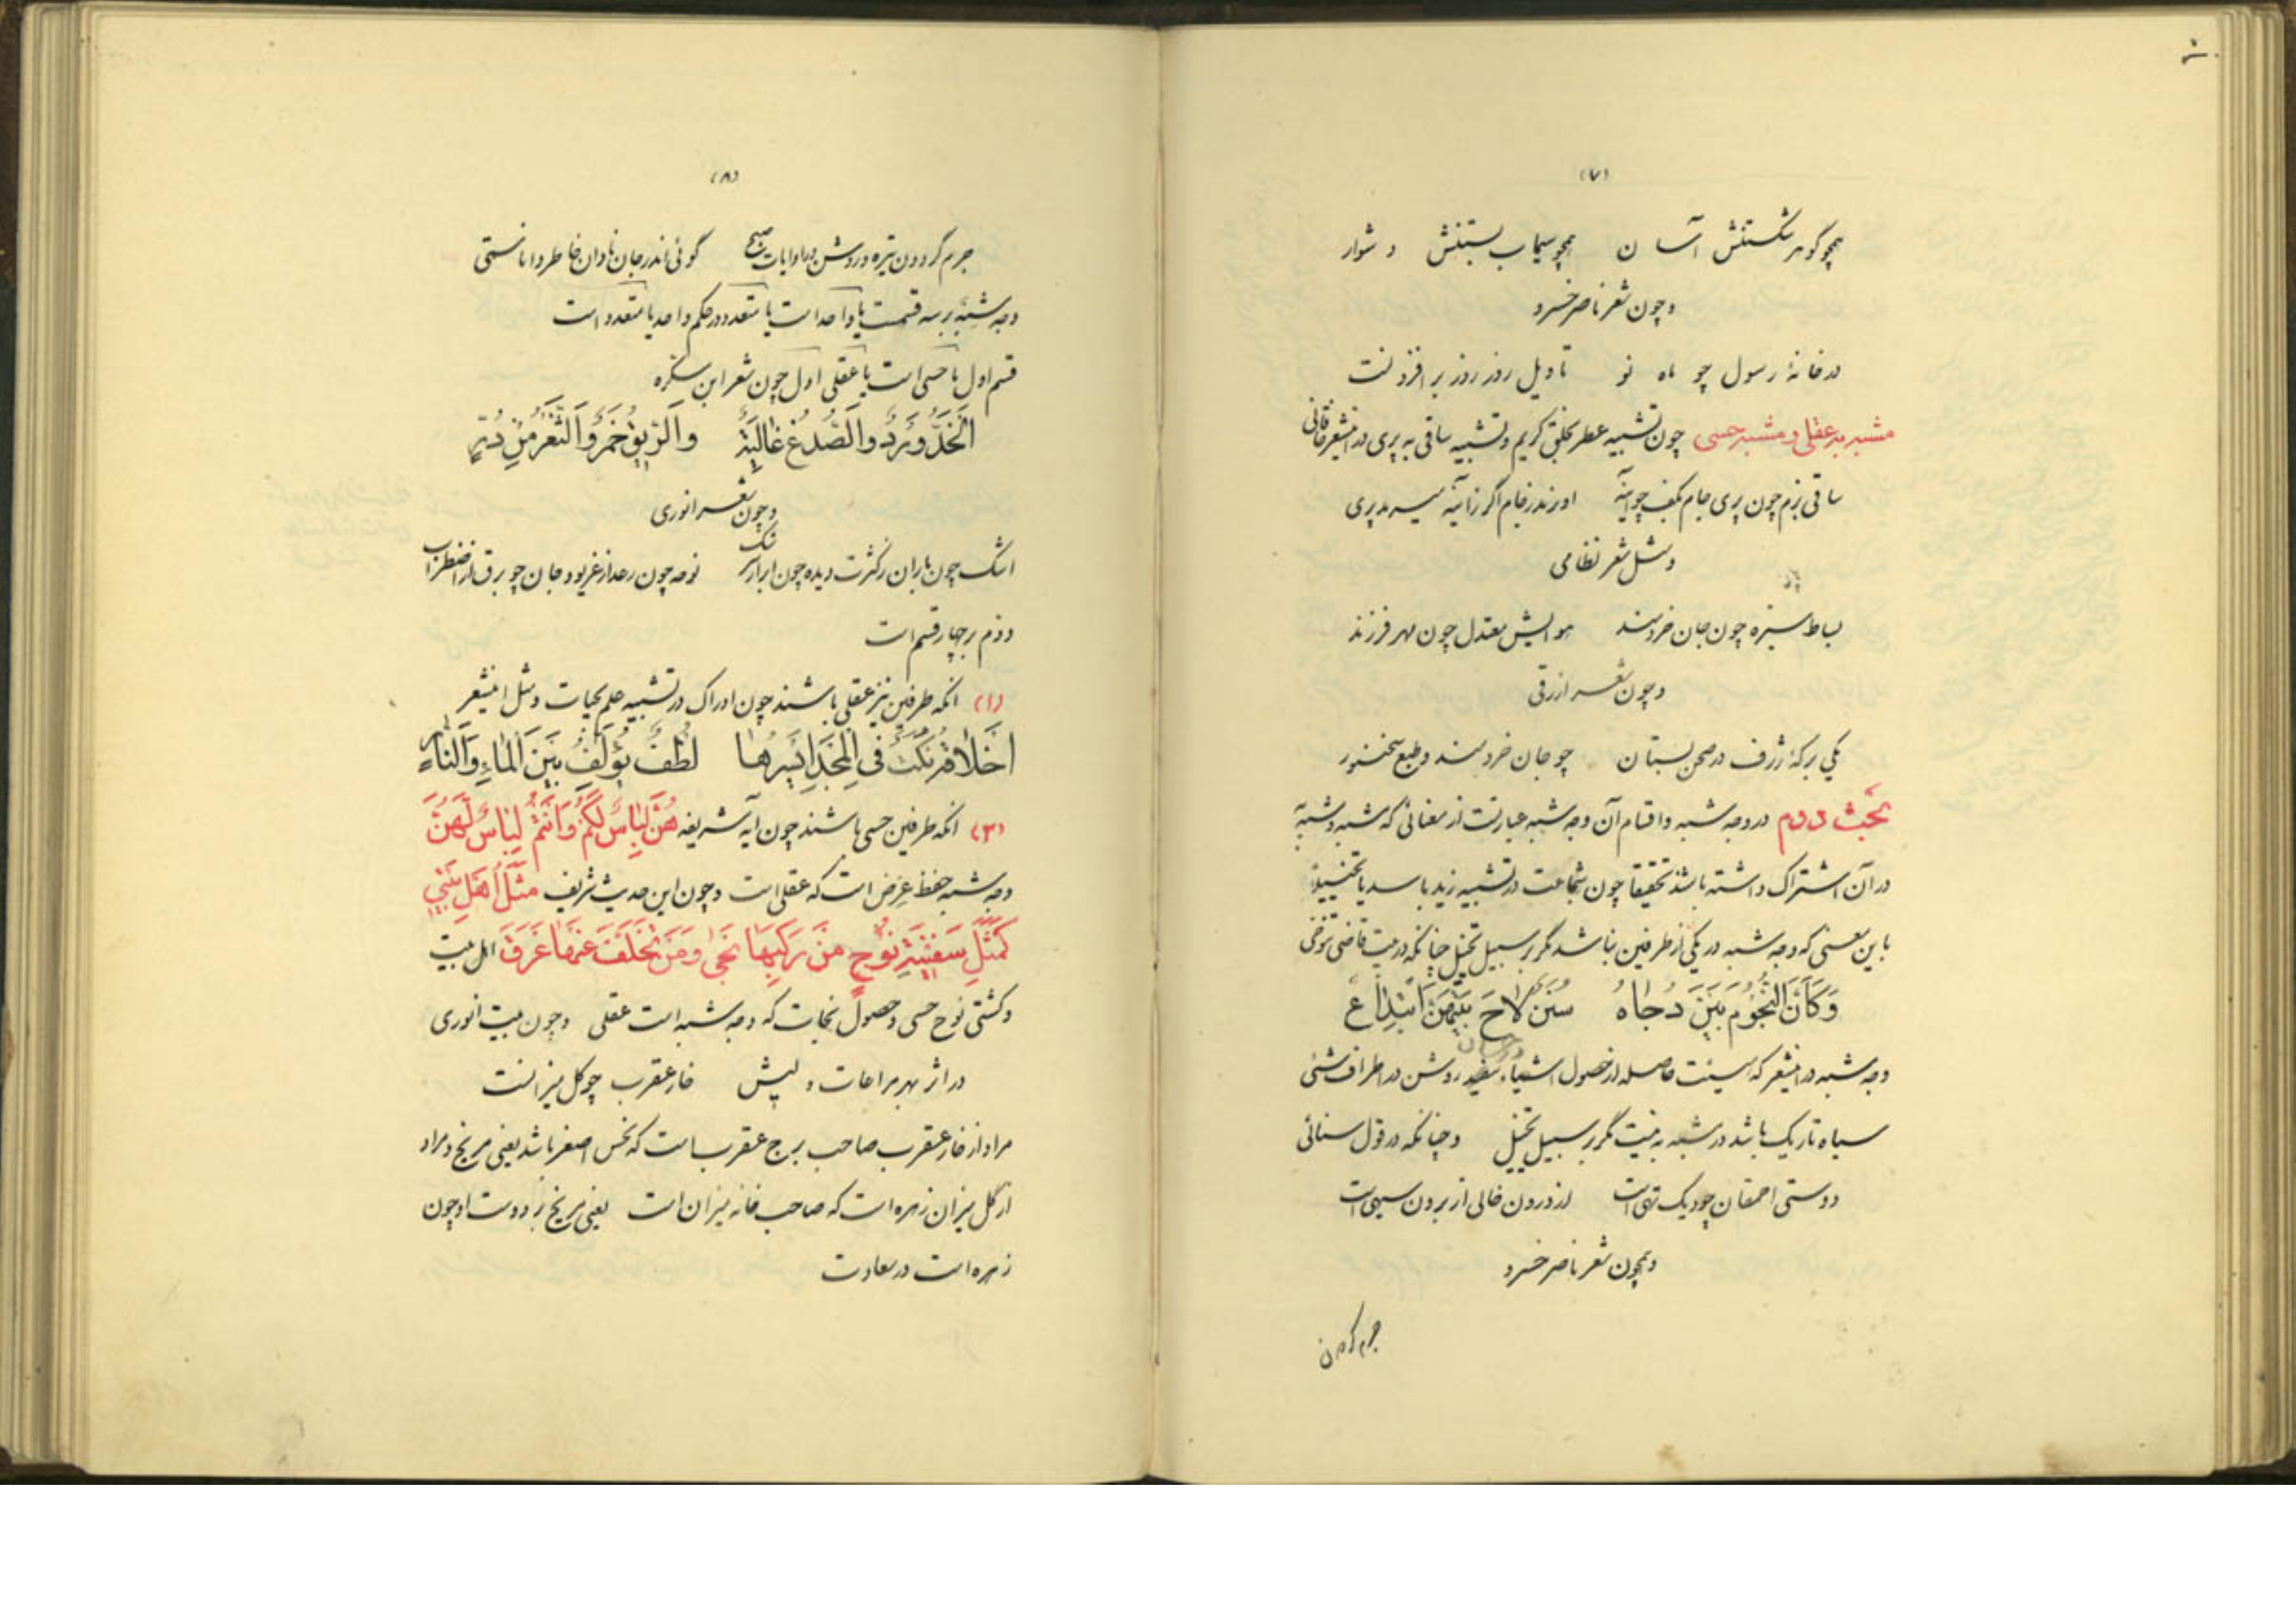 (۷)
همچو گوهر شکستنش آسان همچو سیماب بستنش دشوار
و چون شعر ناصر خسرو
در خانهٔ رسول چو ماه نو تاویل روز روز برافزونست
مشبه به عقلی و مشبه حسی چون تشبیه عطر بخلق کریم و تشبیه ساقی به پری در اینشعر خاقانی
ساقی بزم چون پری جام بکف چو آینه او نرمد ز جام اگر ز آینه میرمد پری
و مثل شعر نظامی
بساط سبزه چون جان خردمند هوایش معتدل چون مهر فرزند
و چون شعر ازرقی
یکی برکهٔ ژرف در صحن بستان چو جان خردمند و طبع سخنور
بحث دوم در وجه شبه و اقسام آن وجه شبه عبارتست از معنائی که مشبه و مشبه به
در آن اشتراک داشته باشند تحقیقا چون شجاعت در تشبیه زید باسد یا تخییلا
باین معنی که وجه شبه در یکی از طرفین نباشد مگر بر سبیل تخیل چنانکه در بیت قاضی تنوخی
وَكَأَنَّ النُّجُومَ بَيْنَ دُجَاهُ سُنَنٌ لَاحَ بَيْنَهُنَّ ابْتِدَاعُ
وجه شبه در اینشعر که هیئت حاصله از حصول اشیاء سفید روشن در اطراف شیئی
سیاه تاریک باشد در مشبه به نیست مگر بر سبیل تخیل و چنانکه در قول سنائی
دوستی احمقان چو دیک تهی است از درون خالی از برون سیهی است
و همچون شعر ناصر خسرو
جرم گردون
(۸)
جرم گردون تیره و روشن در او آیات صبح گوئی اندر جان نادان خاطر داناستی
وجه شبه بر سه قسمت یا واحد است یا متعدد در حکم واحد یا متعدد است
قسم اول یا حسی است یا عقلی اول چون شعر ابن سکره
اَلْخَدُّ وَرْدٌ وَالصُّدْغُ غَالِيَةٌ وَالرِّيقُ خَمْرٌ وَالثَّغْرُ مِنْ دُرَرٍ
و چون شعر انوری
اشک چون باران ز کثرت دیده چون ابر از سرشک نوحه چون رعد از غریو و جان چو برق از اضطراب
دوم بر چهار قسم است
(۱) انکه طرفین نیز عقلی باشند چون ادراک در تشبیه علم بحیات و مثل اینشعر
اَخْلَاقُهُ نُكَتٌ فِي الْمَجْدِ اَيْسَرُهَا لُطْفٌ يُؤَلِّفُ بَيْنَ الْمَاءِ وَالنَّارِ
(۲) انکه طرفین حسی باشند چون ایه شریفه هُنَّ لِبَاسٌ لَكُمْ وَاَنْتُمْ لِبَاسٌ لَهُنَّ
وجه شبه حفظ عِرَض است که عقلی است و چون این حدیث شریف مَثَلُ اَهْلِ بَيْتِي
كَمَثَلِ سَفِينَةِ نُوحٍ مَنْ رَكِبَهَا نَجَى وَمَنْ تَخَلَّفَ عَنْهَا غَرَقَ اهل بیت
و کشتی نوح حسی و حصول نجات که وجه شبه است عقلی و چون بیت انوری
در اثر بهر مراعات ولیش خار عقرب چو گل میزانست
مراد از خار عقرب صاحب برج عقرب است که نحس اصغر باشد یعنی مریخ و مراد
از گل میزان زهره است که صاحب خانه میزان است یعنی مریخ نزد دوست او چون
زهره است در سعادت